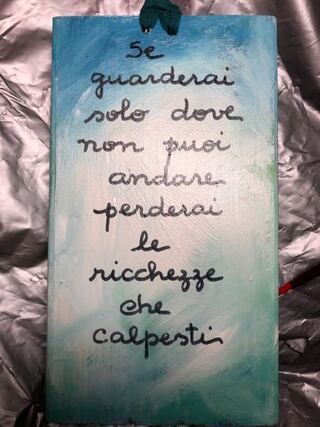 Se
guarderai
solo dove
non puoi
andare
perderai
le
ricchezze
che
calpesti